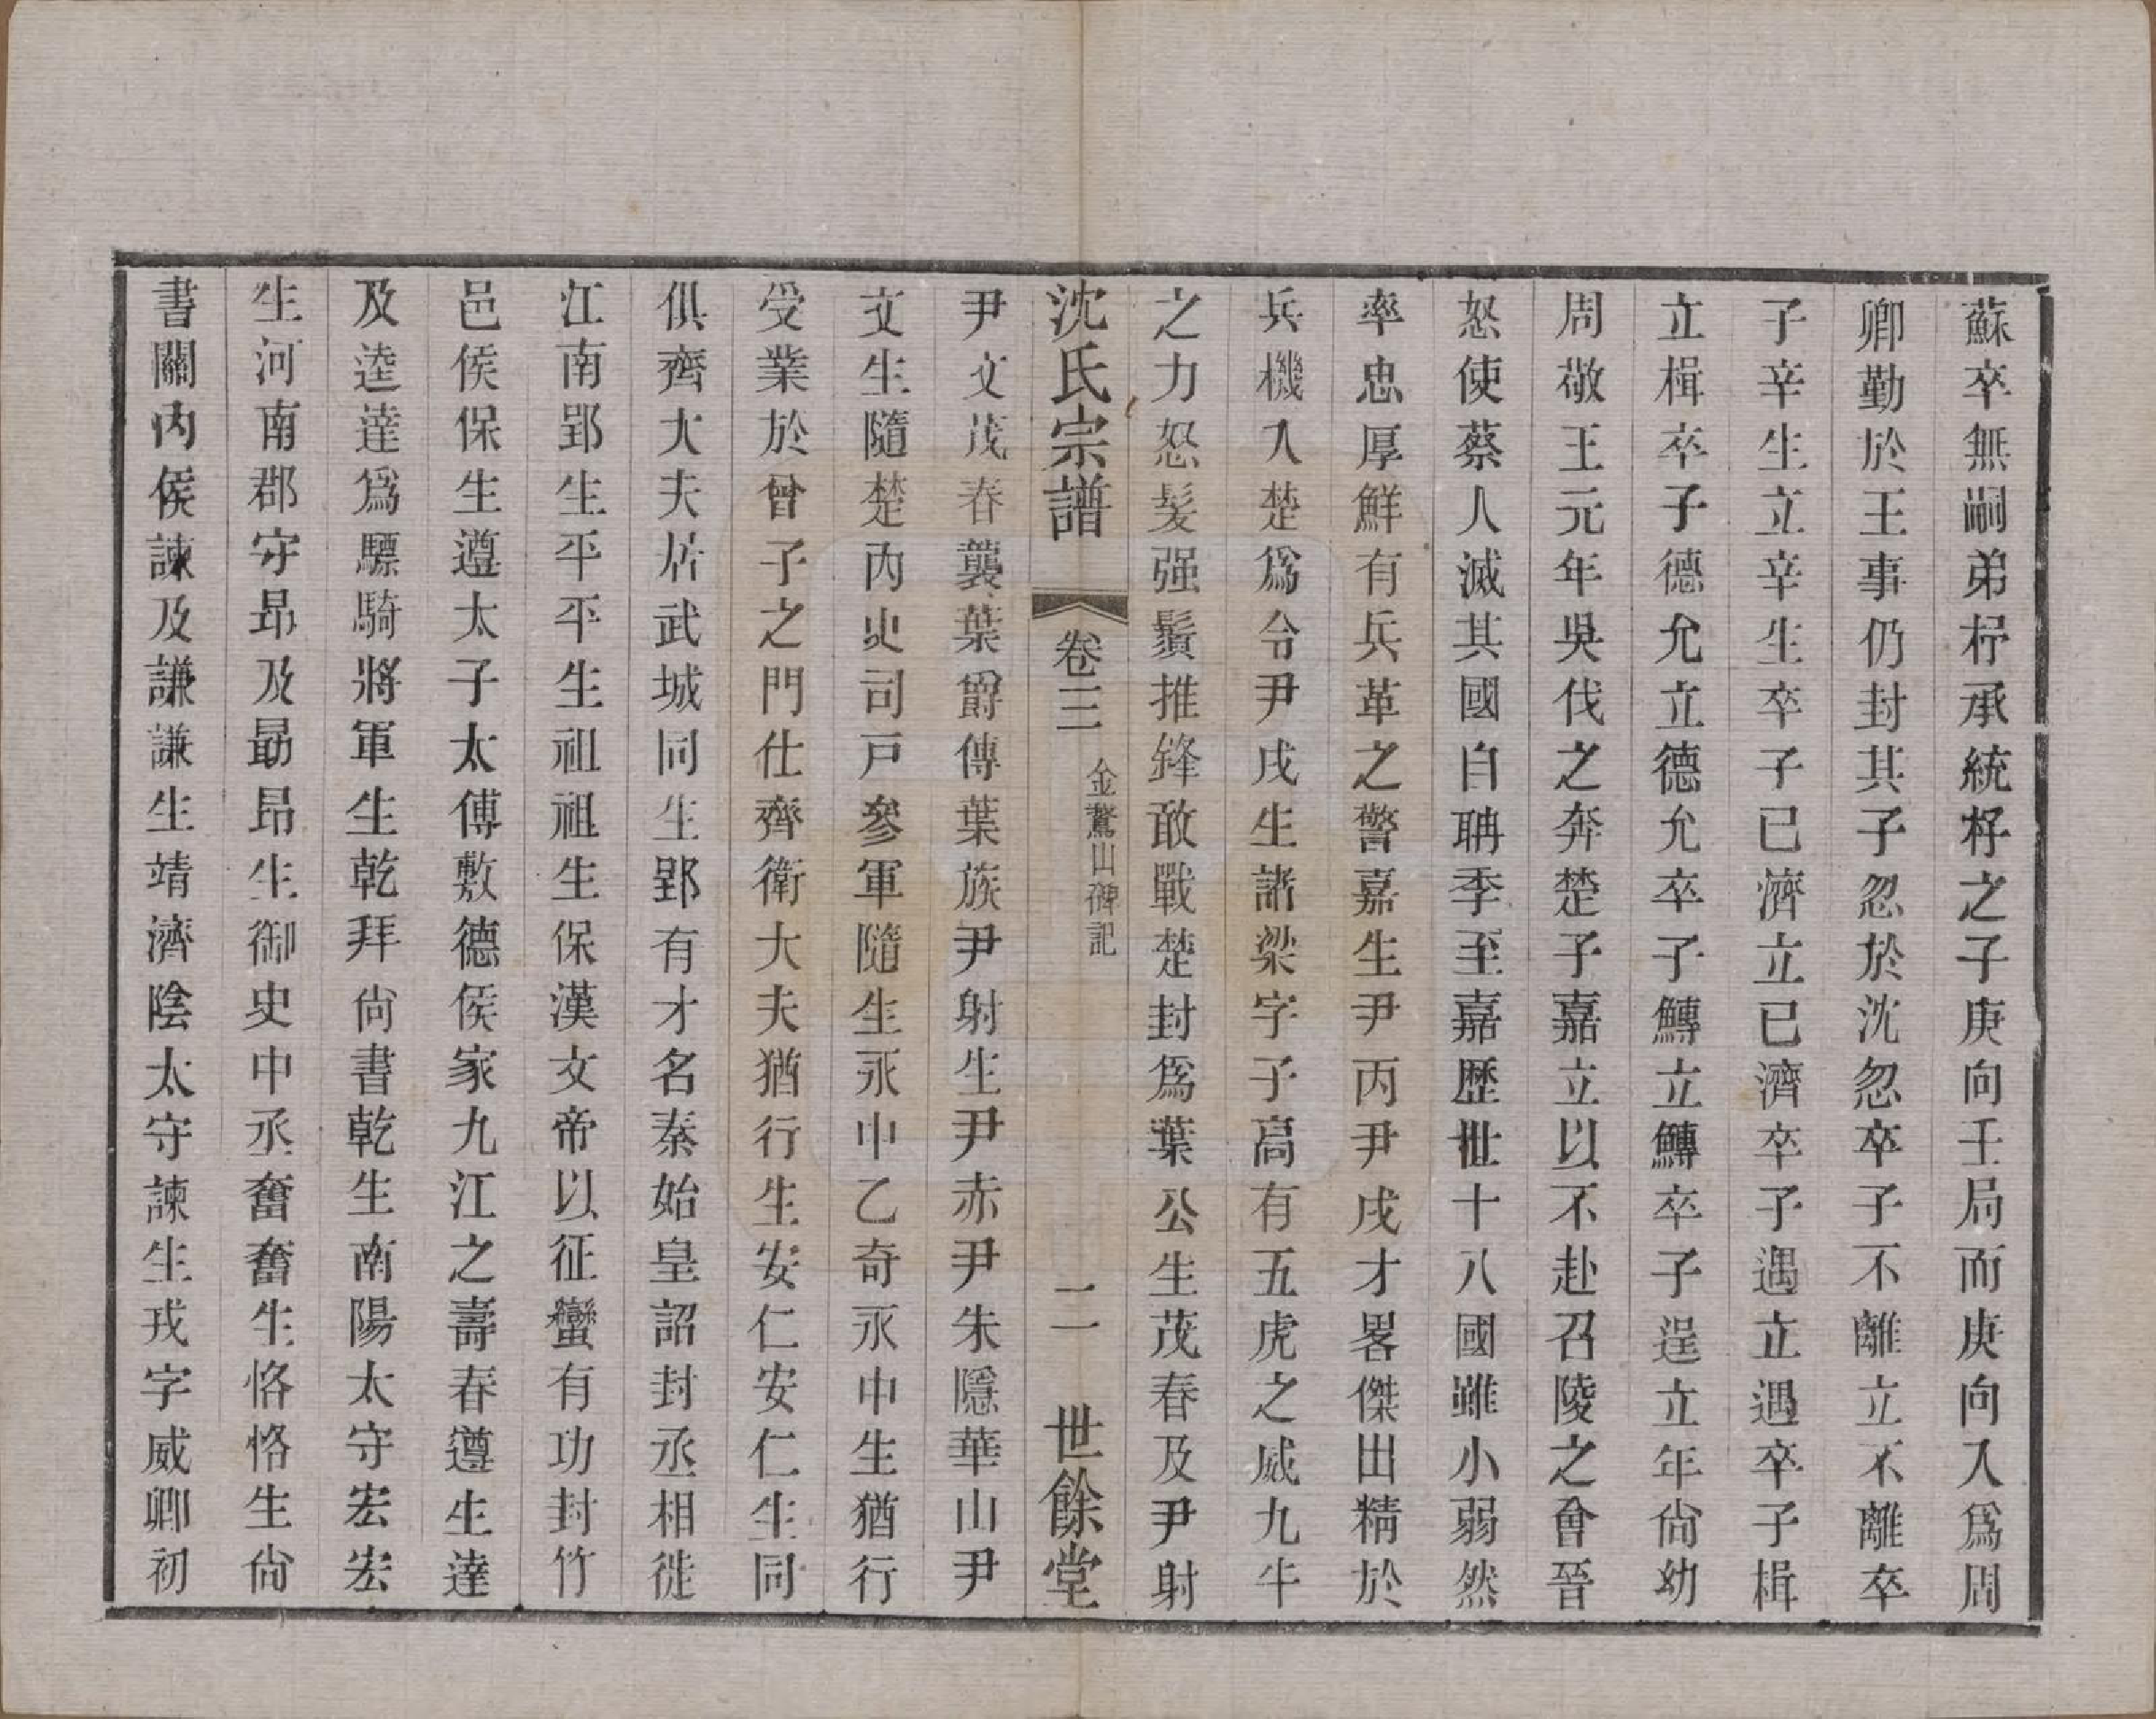 蘇卒無嗣弟杼承統杼之子庚向壬局而庚向入爲周
卿勤於王事仍封其子忍於沈忽卒子不離立不離卒
子辛生立辛生卒子已濟立已濟卒子遇立遇卒子楫
立楫卒子德允立德允卒子鱄立鱄卒子逞立年尙幼
周敬王元年吳伐之奔楚子嘉立以不赴召陵之會晉
怒使蔡人滅其國自聃季至嘉歷世十八國雖小弱然
率忠厚鮮有兵革之警嘉生尹丙尹戌才畧傑出精於
兵機入楚爲令尹戌生諸梁字子高有五虎之威九牛
之力怒髮强鬚推鋒敢戰楚封爲葉公生茂春及尹射
沈氏宗譜 卷三 金鵞山碑記 二 世餘堂
尹文茂春襲葉爵傳葉族尹射生尹赤尹朱隱華山尹
文生隨楚丙史司戸參軍隨生永中乙奇永中生猶行
受業於曾子之門仕齊衛大夫猶行生安仁安仁生同
俱齊大夫居武城同生郢郢有才名秦始皇詔封丞相徙
江南郢生平平生祖祖生保漢文帝以征蠻有功封竹
邑侯保生遵太子太傅敷德侯家九江之壽春遵生達
及逵達爲驃騎將軍生乾拜尙書乾生南陽太守宏宏
生河南郡守昂及勗昂生御史中丞奮奮生恪恪生尙
書關內侯諫及謙謙生靖濟陰太守諫生戎字威卿初